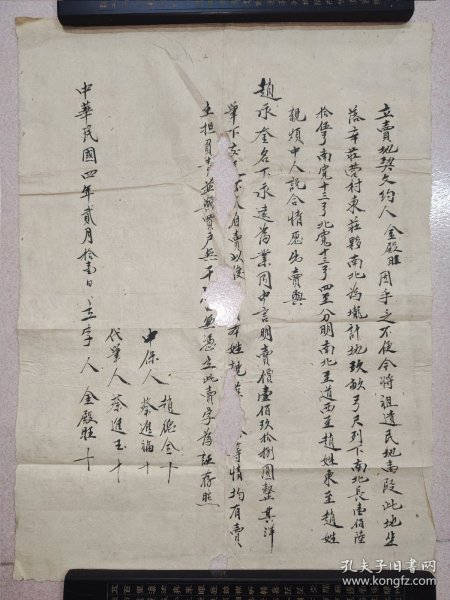 立賣地契文約人金殿旺因手乏不便今將祖遺民地壹段此地坐
落辛莊營村東莊縣南北為壠計地玖畝弓尺列下南北長壹佰陸
拾伍弓南寬十三弓北寬十三弓四至分明南北至道西至趙姓東至趙姓
親煩中人說合情愿出賣與
趙承奎名下永遠為業同中言明賣價壹佰玖拾捌圓整其洋
筆下交 自賣以後 等情均有賣
主担 並與買戶無干 憑立此賣字為証存照
中保人 趙德全十
蔡進福十
代筆人 蔡進玉十
中華民國四年貳月拾壹日 立字人 金殿旺十
孔夫子旧书网